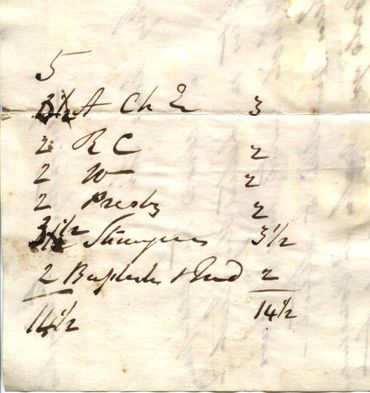 5
3½ A Ch E 3
2 R C 2
2 W 2
2 Presby 2
3½ Strangers 3½
2 Baptists & Ind 2
14½ 14½